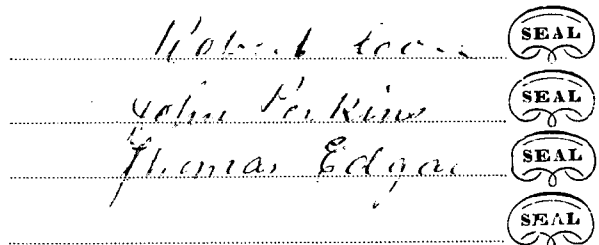 Robert SEAL
John Perkins SEAL
Thomas Edgar SEAL
SEAL